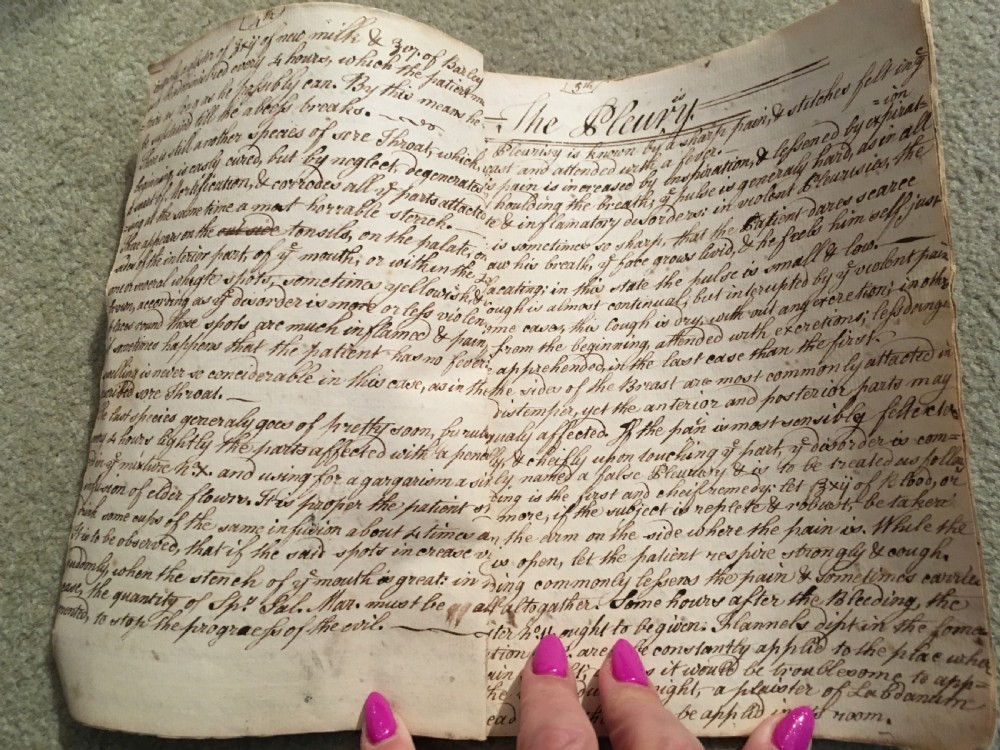 (4th)
of ʒxij of new milk & ʒij. of Barley
administred every 4 hours, which the patient
as long as he possibly can. By this means he
till the abcess breaks.
There is still another species of sore Throat, which
beginning is easly cured, but by neglect, degenerates
sort of Mortification, & corrodes all ye parts attacted
at the same time a most horrable stench.
there appears on the out side tonsuls, on the palate, or
sides of the interior part, of ye mouth; or within the
one or several whyte spots, sometimes yellowish &
brown, according as ye desorder is more or less violen
places round those spots are much inflamed & pain
It sometimes happens that the patient has no fever
swelling is never so conciderable in this case, as in the
sore Throat.
last species generaly goes of pretty soon, by rub
every 4 hours lightly the parts affected with a pencel
in ye mixture No X. and using for a gargarism a
infusion of elder flowrs. It is proper the patient
drink some cups of the same infusion about 4 times a
It is to be observed, that if the said spots increase
when the stench of ye mouth is great: in
case, the quantity of Spt Sal. Mar. must be
to stop the progracss of the evil.
(5th)
The Pleurisy.
Pleurisy is known by a sharp pain, & stitches felt in ye
and attended with a fever.
is pain is increased by Inspiration, & lessened by expirat=
=ion
houlding the breath; ye pulse is generaly hard, as in all
& inflamatory disorders: in violent Pleurisies, the
is sometimes so sharp, that the Patient dares scarce
his breath, ye face grows livid, & he feels him self just
in this state the pulse is small & low.
ough is almost continual, but interupted by ye violent pain
me cases, this cough is dry, with out any excretion; in othr
from the beginning, attended with excretions; less dange
apprehended, in the last case than the first.
the sides of the Breast are most commonly attacted in
distemper, yet the anterior and posterior parts may
qualy affected. If the pain is most sensibly felt exter
ly, & cheifly upon touching ye part, ye desorder is com=
ly named a false Pleurisy & is to be treated as follow
ing is the first and cheif remedy: let ʒxij of Blood, or
more, if the subject is replete & robust, be taken
the arm on the side where the pain is. While the
is open, let the patient respire strongly & cough.
ding commonly lessens the pain & sometimes carries
altogather. Some hours after the Bleeding, the
ought to be given: Flannels dipt in the fome
tion are to be constantly applied to the plac wher
ain it would be troublesome to app=
night, a plaister of Labdanum
be applied in its room.